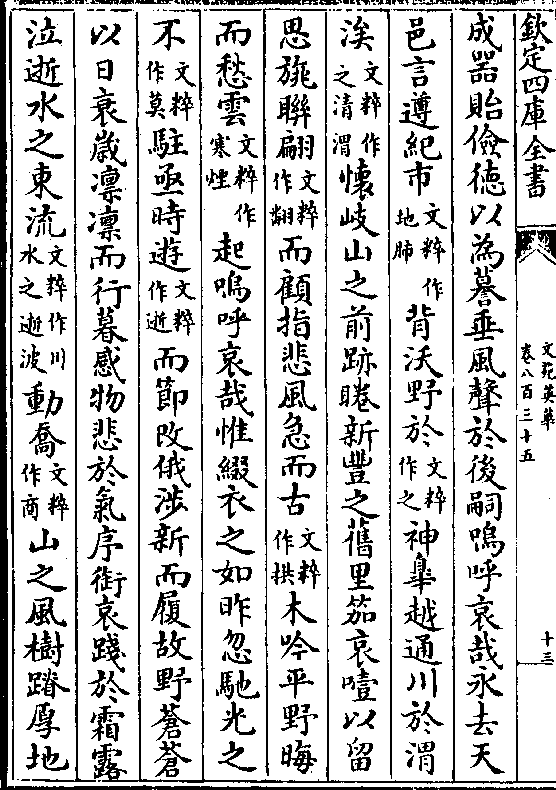 欽定四庫全書
文苑英華
卷八百三十五
十三
成器貽儉徳以為謩垂風聲於後嗣嗚呼哀哉永去天
邑言遵紀市文粹作地肺背沃野於文粹作之神臯越通川於渭
涘文粹作之清渭懷岐山之前跡睠新豐之舊里笳哀噎以留
思旐聯翩文粹作翻而顧指悲風急而古文粹作拱木吟平野晦
而愁雲文粹作寒煙起嗚呼哀哉惟綴衣之如昨忽馳光之
不文粹作莫駐亟時遊文粹作逝而節改俄涉新而履故野蒼蒼
以日衰嵗凛凛而行暮感物悲於氣序銜哀踐於霜露
泣逝水之東流文粹作川水之逝波動喬文粹作商山之風樹蹐厚地